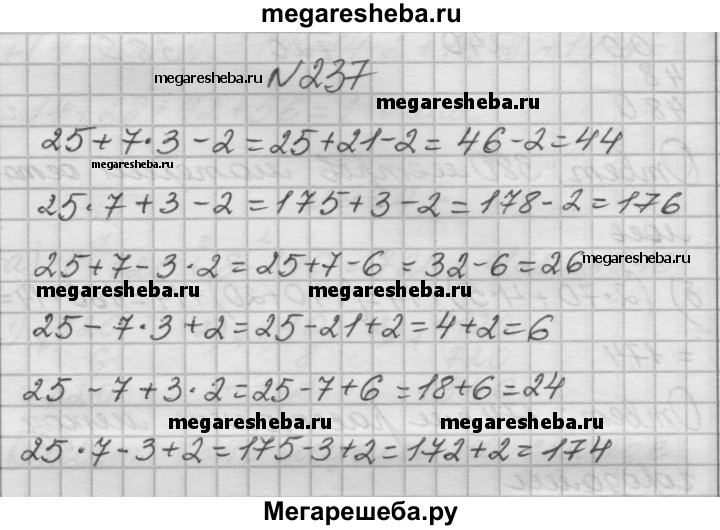 megaresheba.ru
megaresheba.ru
№237
megaresheba.ru
25+7·3-2=25+21-2=46-2=44
megaresheba.ru
25·7+3-2=175+3-2=178-2=176
25+7-3·2=25+7-6=32-6=26
megaresheba.ru
megaresheba.ru
megaresheba.ru
25-7·3+2=25-21+2=4+2=6
25-7+3·2=25-7+6=18+6=24
megaresheba.ru
megaresheba.ru
25·7-3+2=175-3+2=172+2=174
Мегарешеба.ру